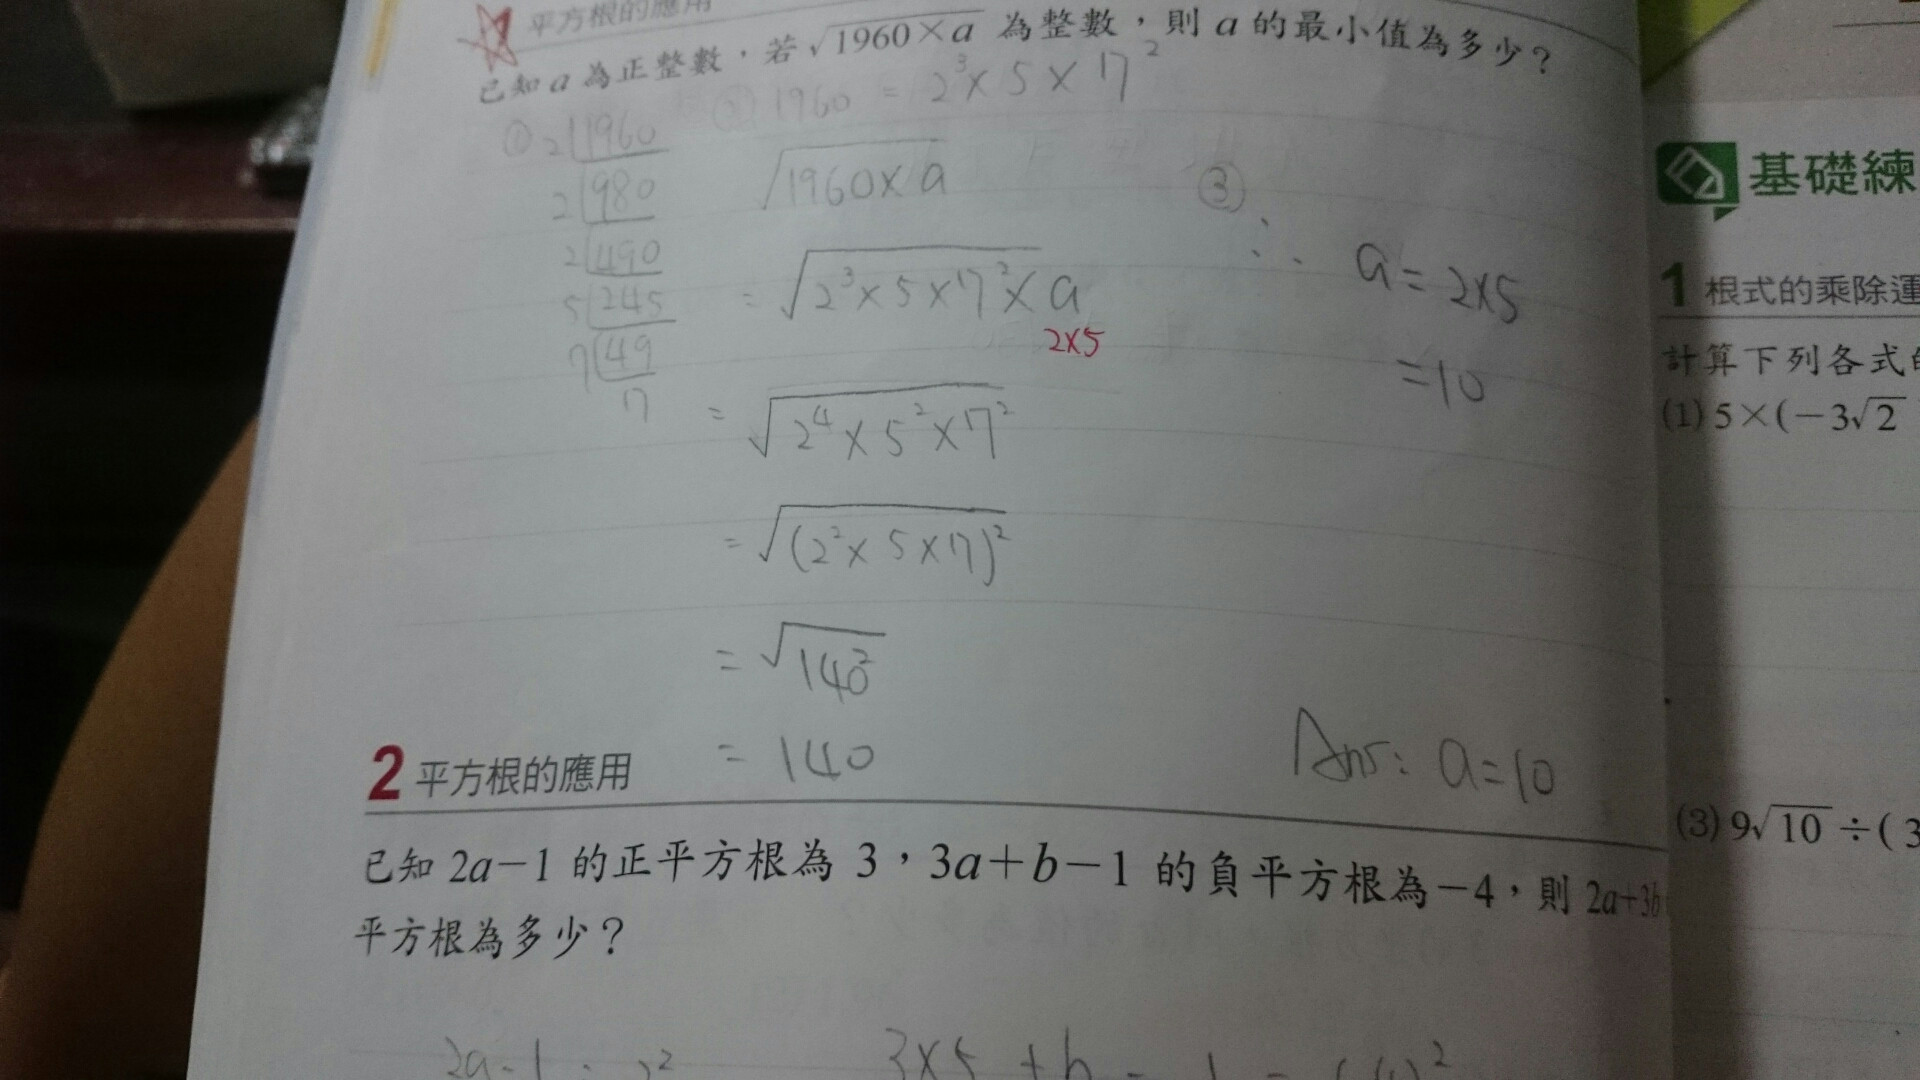 平方根的應用
已知 a 為正整數，若 √1960×a 為整數，則 a 的最小值為多少？
① 2 1960
2 980
2 490
5 245
7 49
7
② 1960 = 2³×5×7²
√1960×a
= √2³×5×7²×a
2×5
= √2⁴×5²×7²
= √(2²×5×7)²
= √140²
= 140
③
∴ a = 2×5
= 10
Ans: a=10
2 平方根的應用
已知 2a－1 的正平方根為 3，3a＋b－1 的負平方根為－4，則 2a＋3b
平方根為多少？
3×5 + b - 1 =
基礎練
1 根式的乘除運
計算下列各式的
(1) 5×(－3√2
(3) 9√10 ÷( 3